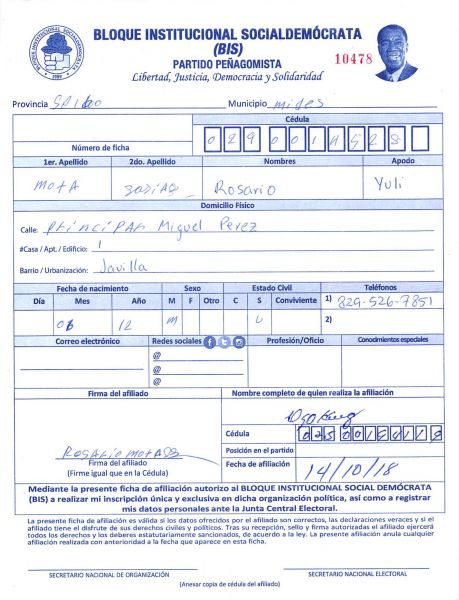 BLOQUE INSTITUCIONAL SOCIALDEMÓCRATA
(BIS)
PARTIDO PEÑAGOMISTA
10478
Libertad, Justicia, Democracia y Solidaridad
Provincia Municipio
Cédula
Número de ficha
1er. Apellido 2do. Apellido Nombres Apodo
MOTA Rosario Yuli
Domicilio Físico
Calle: PRINCIPAL Miguel Perez
#Casa / Apt. / Edificio: 1
Barrio / Urbanización: Javilla
Fecha de nacimiento Sexo Estado Civil Teléfonos
Día Mes Año M F Otro C S Conviviente 1) 829-526-7851
06 12 M 2)
Correo electrónico Redes sociales Profesión/Oficio Conocimientos especiales
@
@
@
Firma del afiliado Nombre completo de quien realiza la afiliación
Cédula
Posición en el partido
Firma del afiliado Fecha de afiliación 14/10/18
(Firme igual que en la Cédula)
Mediante la presente ficha de afiliación autorizo al BLOQUE INSTITUCIONAL SOCIAL DEMÓCRATA
(BIS) a realizar mi inscripción única y exclusiva en dicha organización política, así como a registrar
mis datos personales ante la Junta Central Electoral.
La presente ficha de afiliación es válida si los datos ofrecidos por el afiliado son correctos, las declaraciones veraces y si el
afiliado tiene el disfrute de sus derechos civiles y políticos. Tras su recepción, sello y firma autorizados el afiliado ejercerá
todos los derechos y los deberes estatutariamente sancionados, de acuerdo a la ley. La presente afiliación anula cualquier
afiliación realizada con anterioridad a la fecha que aparece en esta ficha.
SECRETARIO NACIONAL DE ORGANIZACIÓN SECRETARIO NACIONAL ELECTORAL
(Anexar copia de cédula del afiliado)